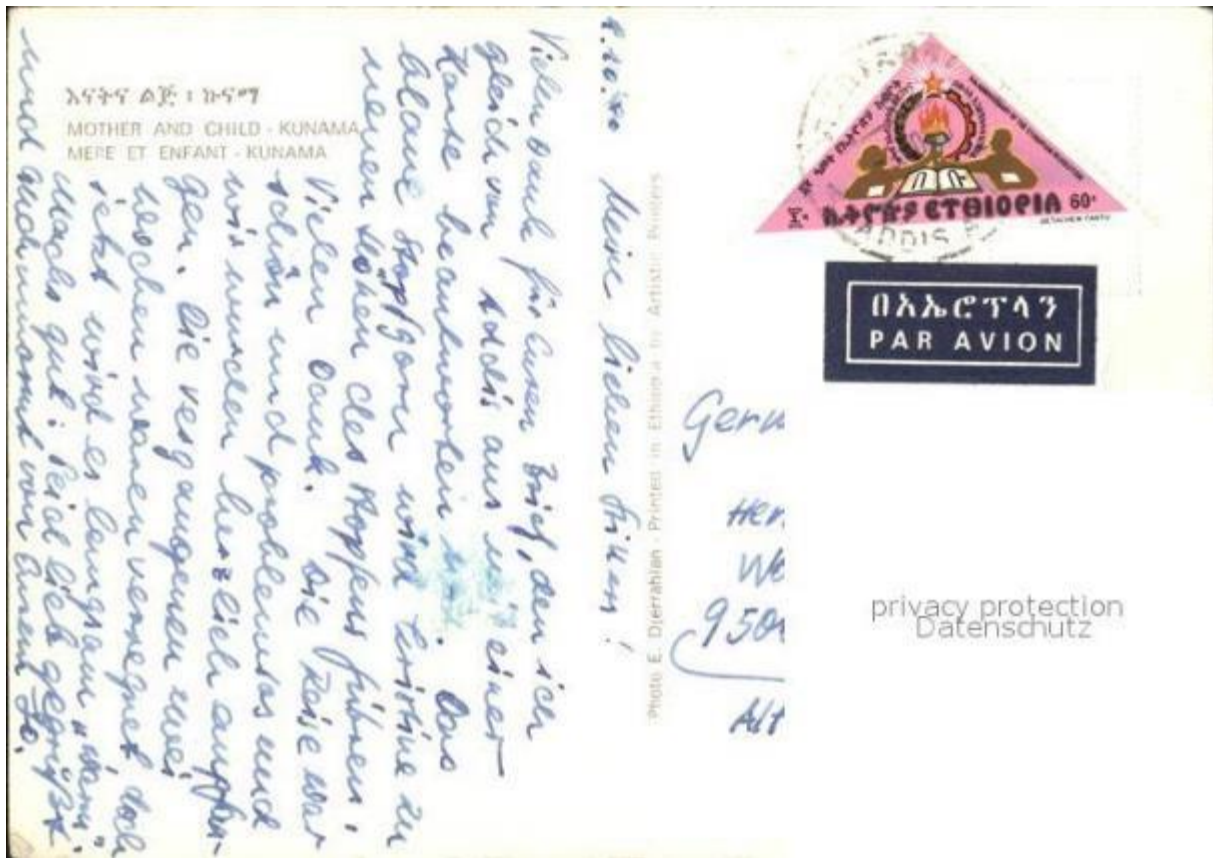 እናትና ልጅ ፡ ኩናማ
MOTHER AND CHILD - KUNAMA
MERE ET ENFANT - KUNAMA
Meine lieben
Vielen Dank für Euren Brief, den ich
gleich von Addis aus mit einer
Karte beantworten will. Das
blaue Stopfgarn wird Kristine zu
neuen Höhen des Stopfens führen,
Vielen Dank. Die Reise war
schön und problemlos und
wir wurden herzlich empfan-
gen. Die vergangenen zwei
Wochen waren verregnet, doch
jetzt wird es langsam "warm",
Machs gut, seid lieb gegrüßt
und umarmt von Eurem Jo.
Photo E. Djerrahian - Printed in Ethiopia by Artistic Printers
ኢትዮጵያ ETHIOPIA 60c
ADDIS
በአኤሮፕላን
PAR AVION
Germ
Her
We
950
Alt
privacy protection
Datenschutz